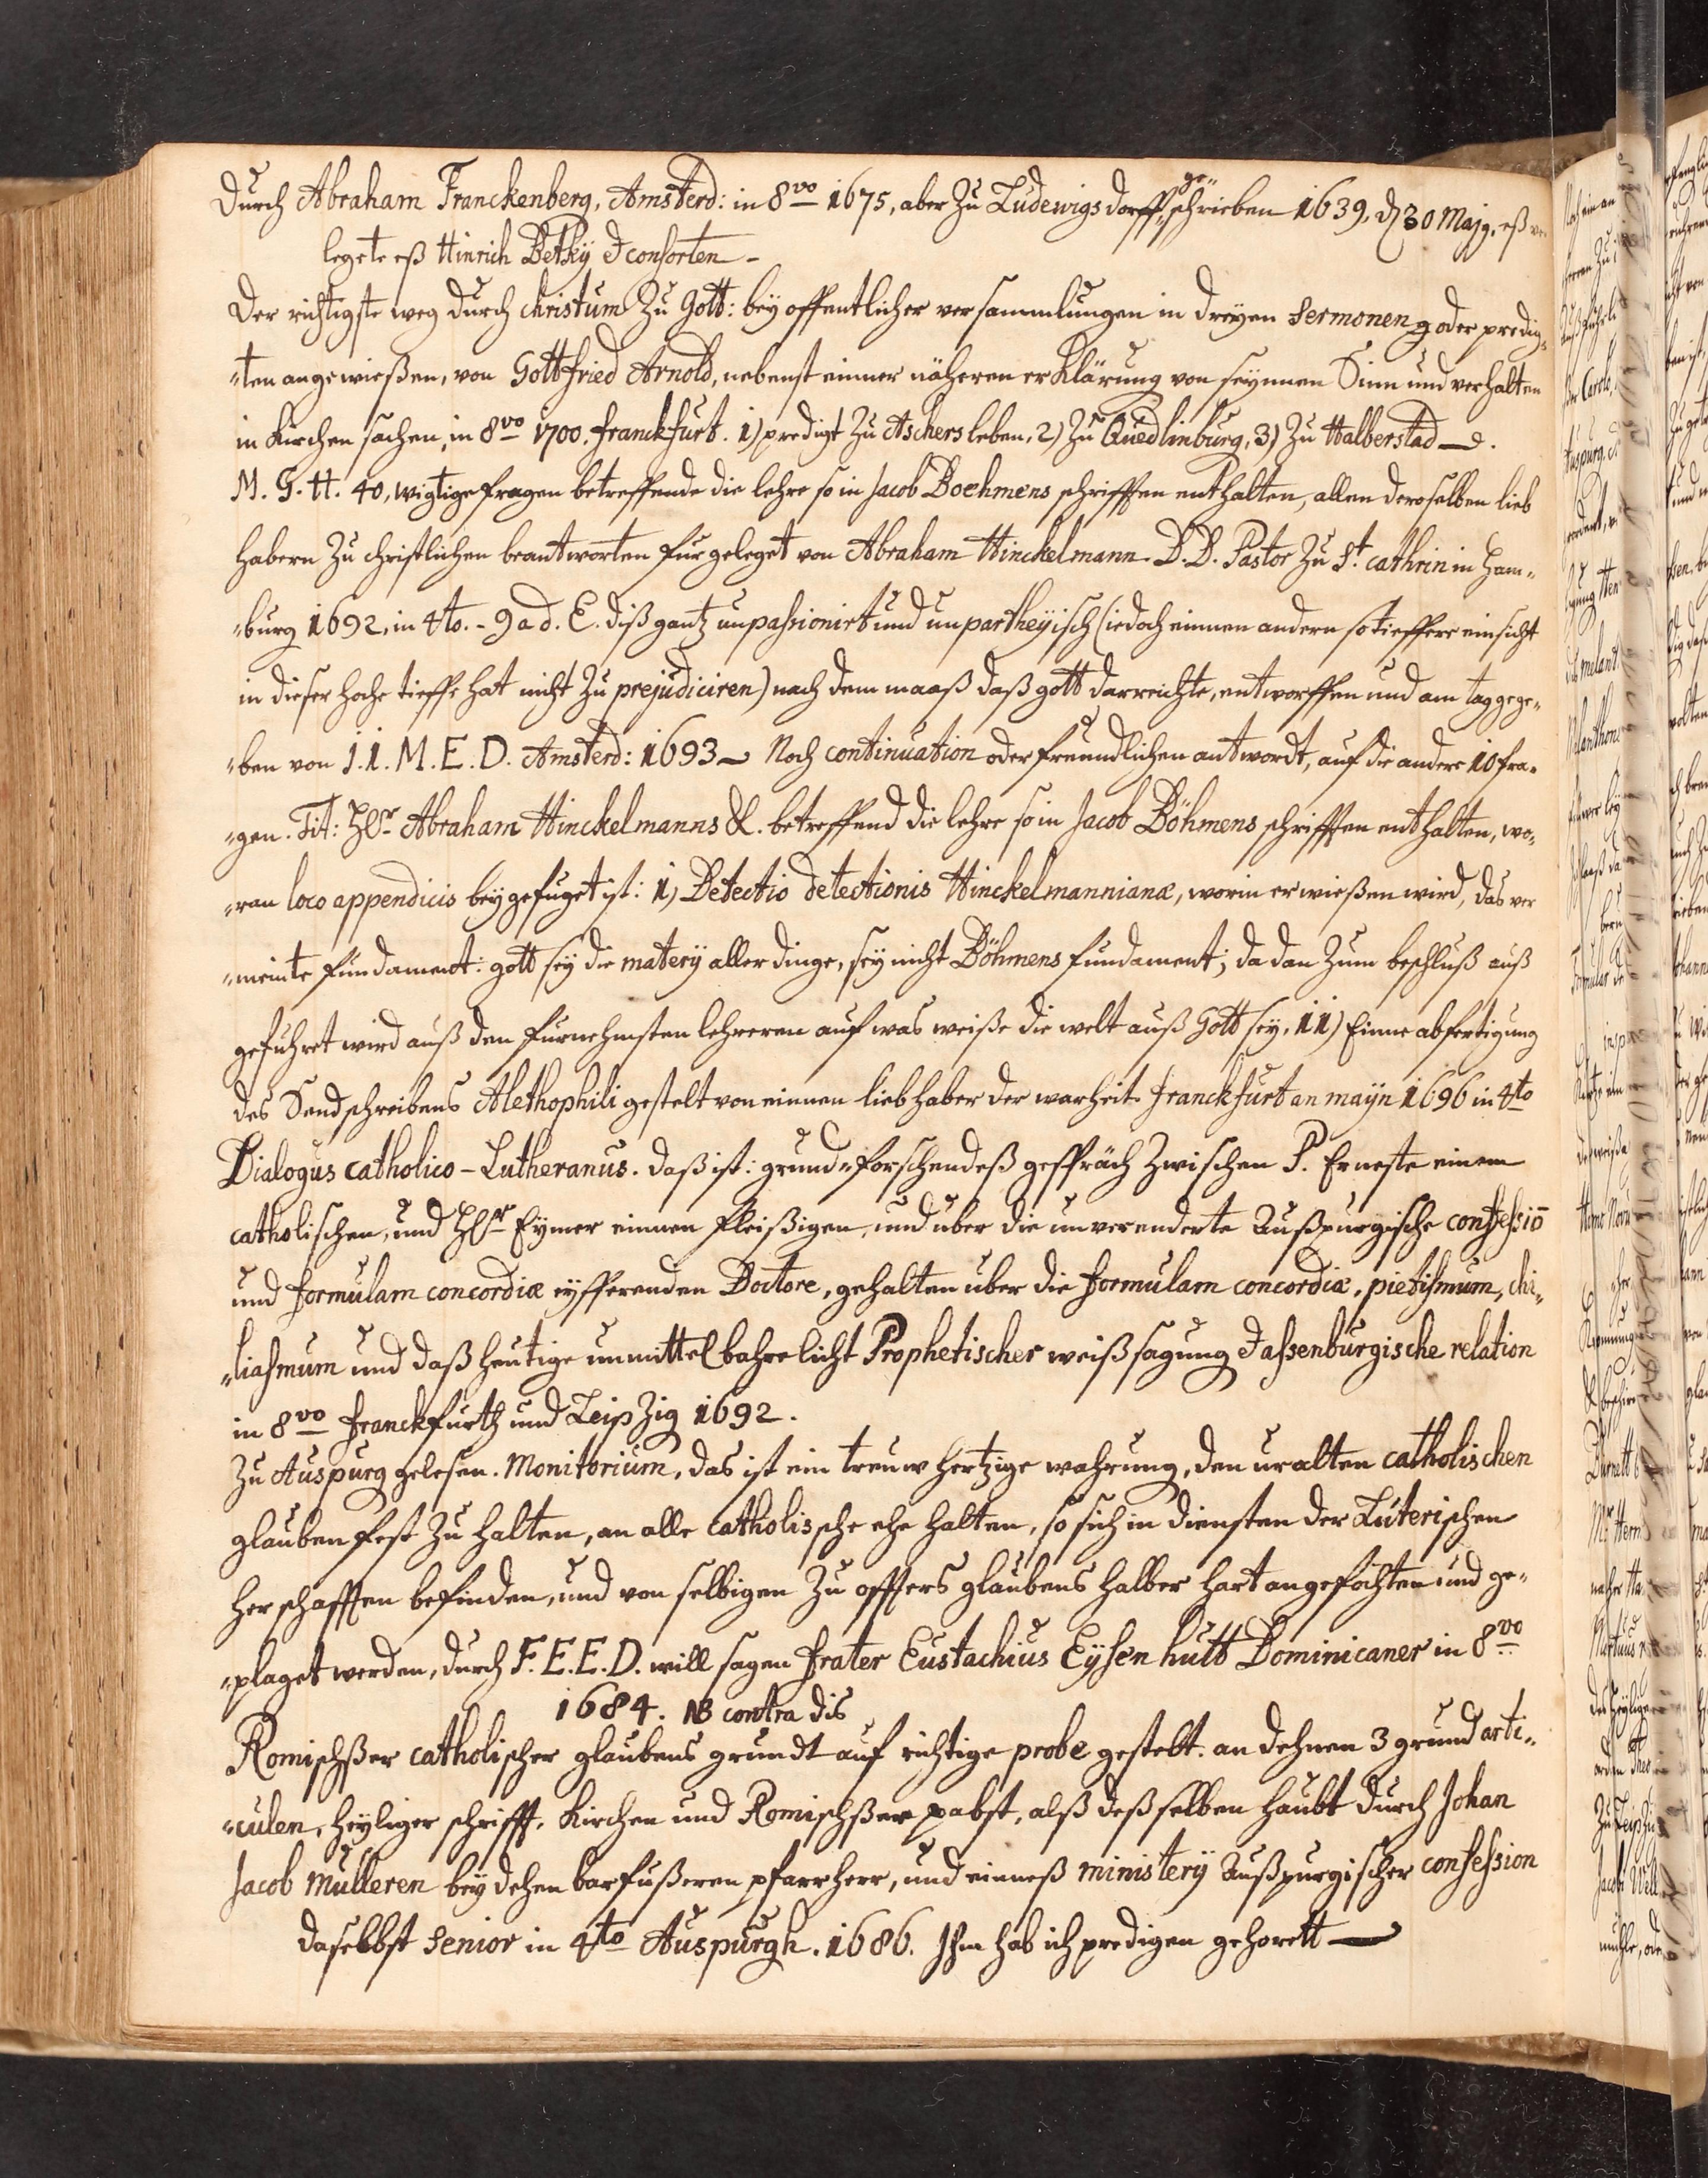 durch Abraham Franckenberg, Amsterd: in 8vo 1675, aber Zu Ludewigsdorff geschrieben 1639, d 30 Majy, eß ver
legete eß Hinrich Betkÿ & consorten -
Der richtigste weg durch christum Zu Gott: bey offentlicher versammlungen in dreyen Sermonen oder predig„
„ten angewießen, von Gottfried Arnold, nebenst einner näheren erklärung von seynnen Sinn und verhalten
in Kirchen sachen, in 8vo 1700. franckfurt. 1) predigt Zu Aschersleben, 2) Zu Quedlinburg, 3) Zu Halberstad.
M. G. H. 40, wigtige fragen betreffende die lehre so in Jacob Boehmens schrifften enthalten, allen deroselben lieb
habern Zu christlichen beantworten furgeleget von Abraham Hinckelmann D. D. Pastor Zu St. cathrin in Ham„
„burg 1692, in 4to. - d. E. diß gantz unpassionirt und unpartheyisch (iedoch einnen andern so tieffere einsicht
in dieser hoche tieffe hat nicht Zu prejudiciren) nach dem maaß daß gott darreichte, entworffen und am tag gege„
„ben von J. J. M. E. D. Amsterd: 1693 Noch continuation oder freundlichen antwordt, auf die andere 10 fra„
„gen. Tit: Hr Abraham Hinckelmanns &. betreffend die lehre so in Jacob Böhmens schrifften enthalten, wo„
„ran loco appendicis beygefuget ist: 1) Detectio detectionis Hinckelmannianæ, worin erwießen wird, das ver
„meinte fundament: gott sey die matery aller dinge, sey nicht Böhmens fundament; da dan Zum beschluß auß
gefuhret wird auß den furnehmsten lehreren auf was weiße die welt auß Gott sey, 11) Einne abfertigung
des Sendschreibens Alethophili gestelt von einnen liebhaber der warheit. franckfurt an mayn 1696 in 4to
Dialogus catholico-Lutheranus. daß ist: grund„forschendeß gespräch Zwischen P. Erneste einem
catholischen, und Hr Eymer einnen fleißigen, und uber die unverenderte Außpurgische confessiō
und formulam concordiæ eyfferenden Doctore, gehalten uber die formulam concordiæ, pietismum, chi„
„liasmum und daß heutige unmittelbahre licht Prophetischer weißsagung & assenburgische relation
in 8vo franckfurth und LeipZig 1692.
Zu Auspurg gelesen. Monitorium, das ist ein treuwhertzige wahrung, den uralten catholischen
glauben fest Zu halten, an alle catholissche ehehalten, so sich in diensten der Luterischen
herschafften befinden, und von selbigen Zu offters glaubens halber hart angefochten und ge„
„plaget werden, durch F. E. E. D. will sagen frater Eustachius Eysenhutt Dominicaner in 8vo
1684. NB contra dis
Romischßer catholischer glaubens grundt auf richtige probe gestelt. an dehnen 3 grund arti„
„culen, heyliger schrifft, Kirchen und Romischßer pabst, alß deßselben haubt durch Johan
Jacob Mulleren bey dehen barfußeren pfarrherr, und einneß ministerÿ Außpurgischer confession
daselbst Senior in 4to Auspurgh. 1686. Ihm hab ich predigen gehorett